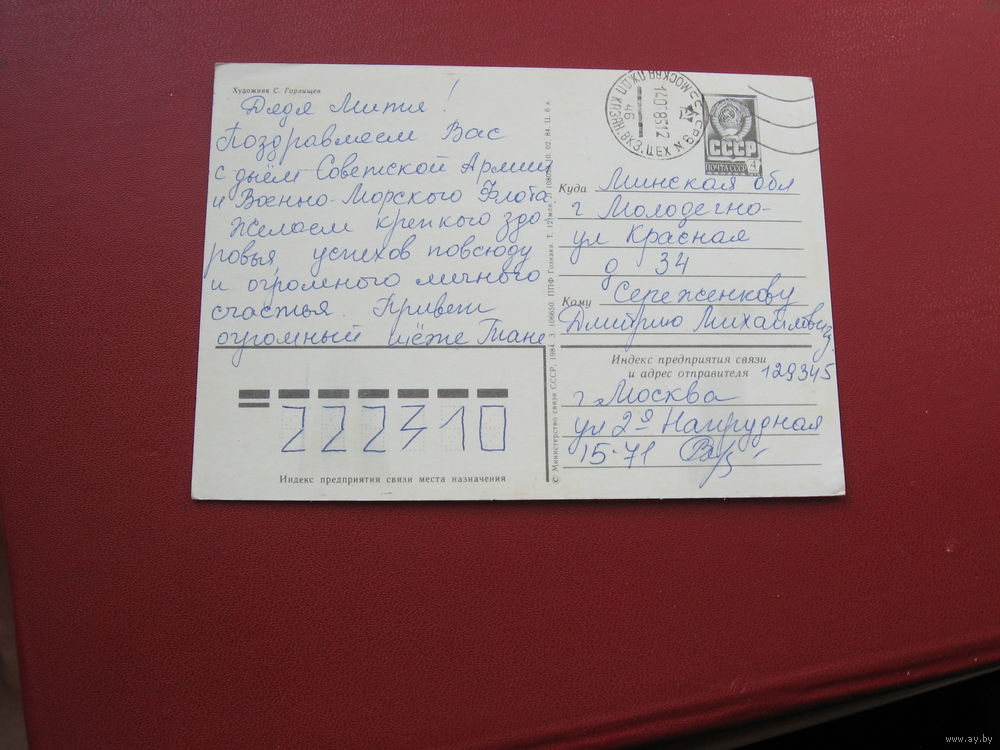 Художник С. Горлищев
Дядя Митя!
Поздравляем Вас
с днём Советской Армии
и Военно-Морского Флота
Желаем крепкого здо-
ровья успехов повсюду
и огромного личного
счастья. Привет
огромный тёте Тане
222310
Индекс предприятия связи места назначения
© Министерство связи СССР, 1984. З. 106650. ППФ Гознака. Т. 12 млн. 10. 02. 84. Ц. 6 к.
СССР МОСКВА
КАЗАН. ВКЗ. ЦЕХ N 9
46
СССР
ПОЧТА СССР 4
Куда Минская обл
г Молодечно-
ул Красная
д 34
Кому Сереженкову
Дмитрию Михайловичу
Индекс предприятия связи
и адрес отправителя 129345
г. Москва
ул 2я
15-71
www.ay.by